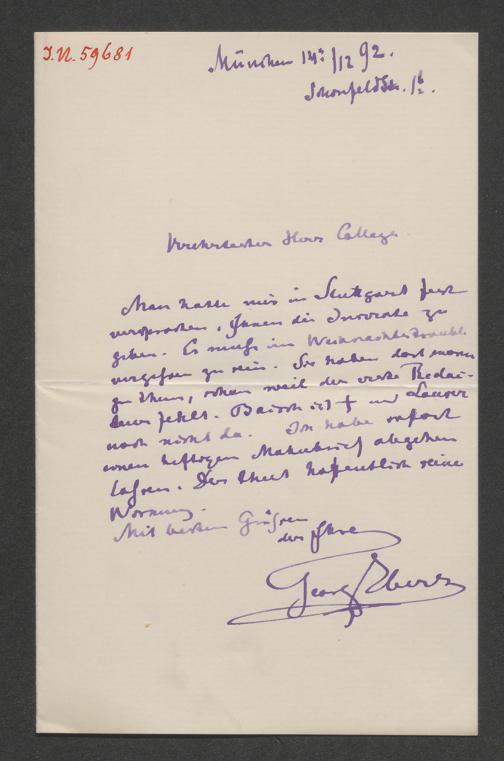 I.N. 59681
München 14: /12 92.
Schönfeldstr.
Verehrtester Herr College
Man hatte mir in Stuttgart fest
versprochen, Ihnen die Inserate zu
geben. Es muß im
vergessen zu sein. Sie haben dort
zu thun, schon weil der erste Redac-
teur fehlt. Baisch ist † und Lauser
noch nicht da. Ich habe sofort
einen heftigen Mahnbrief abgehen
lassen. Der thut hoffentlich seine
Mit besten Grüßen
der Ihre
Georg Ebers